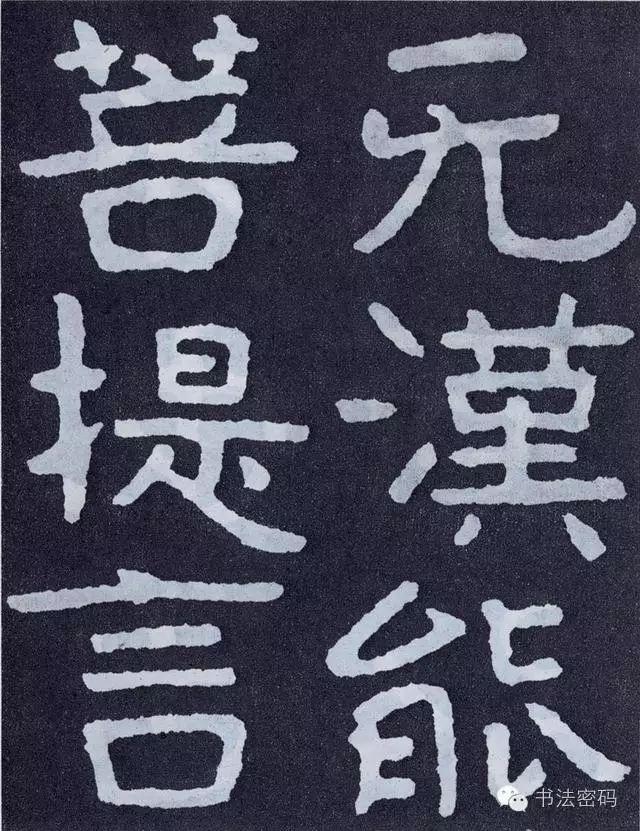 元漢能
菩提言
书法密码